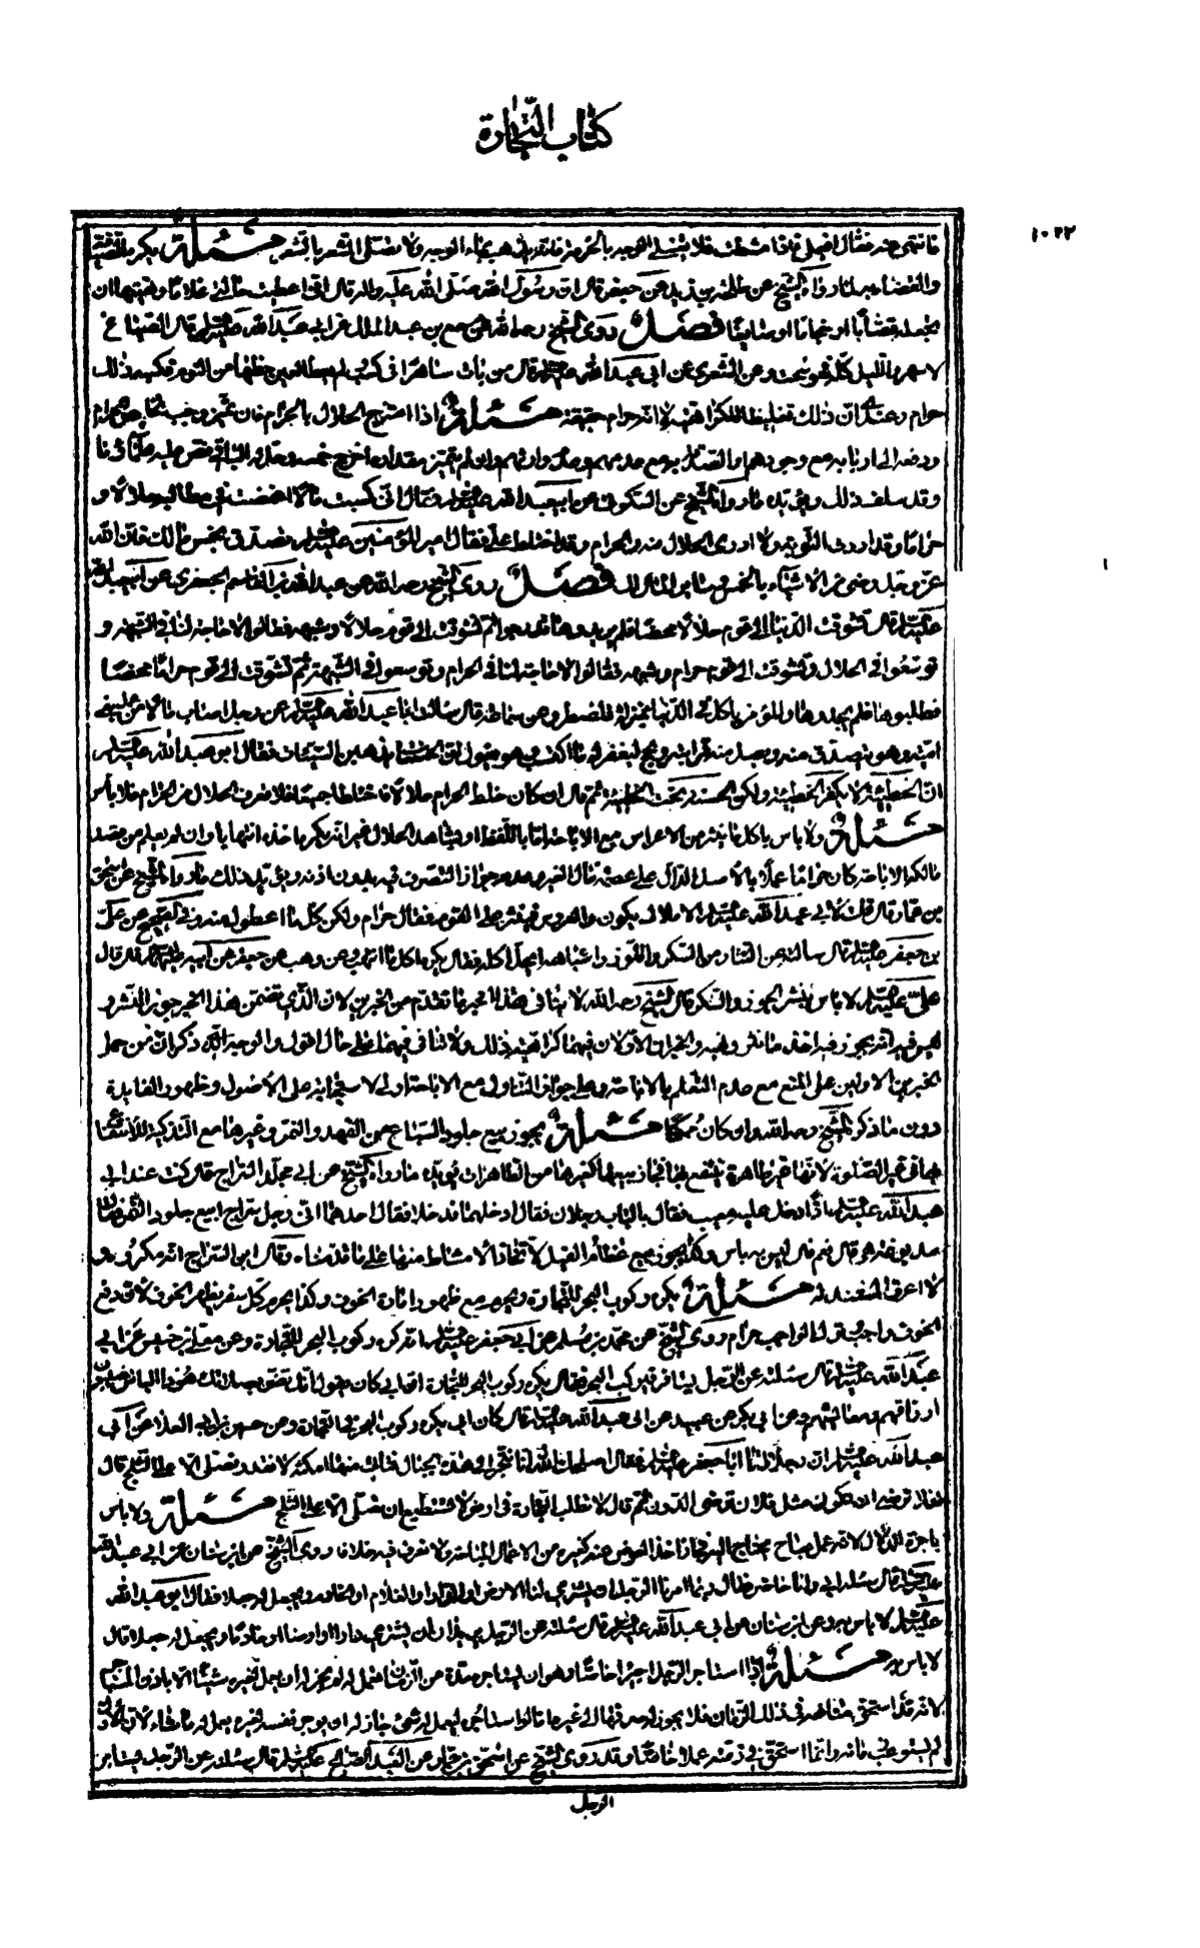 كتاب التجارة
١٠٢٢
فانتهى عنه فقال افعلي فاذا مشطت فلا تجلي الوجه بالخرق فانه يذهب بماء الوجه ولا تصلي الشعر بالشعر مسئلة يكره
والقضاء لما رواه الشيخ عن طلحة بن زيد عن جعفر قال ان رسول الله صلى الله عليه واله قال اني اعطيت خالتي غلاما ونهيتها ان
تجعله قصابا او حجاما او صايغا فصل روى الشيخ رحمه الله عن مسمع بن عبد الملك عن ابي عبد الله عليه السلام قال الصناع
سهروا الليل كله فهو سحت وعن الشعيري عن ابي عبد الله عليه السلام قال من بات ساهرا في كسب لم يعط العين حظها من النوم فكسبه ذلك
حرام وعندي ان ذلك تغليظا للكراهية لا انه حرام حقيقة مسئلة اذا امتزج الحلال بالحرام فان تميز وجب
ودفعه الى اربابه مع وجودهم والصدقة به مع عدمهم وعدم وارثهم وان لم يتميز مقداره اخرج خمسه وحل له الباقي
وقد سلف ذلك ويؤيده ما رواه الشيخ عن السكوني عن ابي عبد الله عليه السلام فقال اني كسبت مالا اغمضت في مطالبه حلالا و
حراما وقد اردت التوبة ولا ادري الحلال منه والحرام وقد اختلط علي فقال امير المؤمنين عليه السلام تصدق بخمس مالك فان الله
عز وجل رضي من الاشياء بالخمس وساير المال لك فصل روى الشيخ رحمه الله عن عبد الله بن القاسم الجعفري عن ابي عبد الله
عليه السلام قال تشوقت الدنيا الى قوم حلالا محضا فلم يريدوها فدرجوا ثم تشوقت الى قوم حلالا وشبهة فقالوا لا حاجة لنا في الشبهة و
توسعوا في الحلال وتشوقت الى قوم حرام وشبهة فقالوا لا حاجة لنا في الحرام وتوسعوا في الشبهة ثم تشوقت الى قوم حراما محضا
فطلبوها فلم يجدوها والمؤمن ياكل في الدنيا بمنزلة المضطر وعن سماعة قال سالت ابا عبد الله عليه السلام عن رجل اصاب مالا من عمل بني
امية وهو يتصدق منه ويصل منه قرابته ويحج ليغفر له ما اكتسب وهو يقول ان الحسنات يذهبن السيئات فقال ابو عبد الله عليه السلام
ان الخطيئة لا تكفر الخطيئة ولكن الحسنة تحط الخطيئة ثم قال ان كان خلط الحرام حلالا فاختلطا جميعا فلا يعرف الحلال من الحرام فلا باس
مسئلة ولا باس باكل ما ينثر من الاعراس مع الاباحة اما باللفظ او بشاهد الحال غير انه يكره اخذه انتهابا وان لم يعلم من قصد
مالكه الاباحة كان حراما عملا بالاصل الدال على عصمة مال الغير وعدم جواز التصرف فيه بدون اذنه ويؤيد ذلك ما رواه الشيخ عن اسحق
بن عمار قال قلت لابي عبد الله عليه السلام الاملاك يكون والعروس فينثر على القوم فقال حرام ولكن كل ما اعطوك منه وفي الصحيح عن علي
بن جعفر عليه السلام قال سالته عن النثار من السكر واللوز واشباهه ايحل اكله فقال يكره اكل ما انتهب وعن وهب عن جعفر عن ابيه عليهما السلام قال قال
علي عليه السلام لا باس بنثر الجوز والسكر قال الشيخ رحمه الله لا ينافي هذا الخبر ما تقدم من الخبرين لان الذي تضمن هذا الخبر جواز النثر و
ليس فيه انه يجوز فيه اخذ ما نثر ونهبه والخبران الاولان فيهما كراهية ذلك ولا تنافي فيهما على حال
الخبرين الاولين على المنع مع عدم العلم بالاباحة وعلى جواز التناول مع الاباحة اولى
دون ما ذكره الشيخ رحمه الله وان كان ممكنا مسئلة يجوز بيع جلود السباع من الفهد والنمر وغيرهما مع التذكية
بها في غير الصلوة لانها عين طاهرة ينتفع بها فجاز بيعها كغيرها من الطاهرات يؤيده ما رواه الشيخ عن ابي مخلد السراج قال كنت عند ابي
عبد الله عليه السلام اذ دخل عليه معتب فقال بالباب رجلان فقال ادخلهما فدخلا فقال احدهما اني رجل سراج ابيع جلود النمر فقال
مدبوغة هي قال نعم قال ليس به باس وكذا يجوز بيع عظام الفيل لاتخاذ الامشاط منها على ما قدمناه وقال ابن السراج انه مكروه و
لا اعرف المستند له مسئلة يكره ركوب البحر للتجارة ويحرم مع ظهور امارة الخوف وكذا يحرم كل سفر يظهر الخوف لان دفع
الخوف واجب وترك الواجب حرام روى الشيخ عن محمد بن مسلم عن ابي جعفر عليه السلام انه كره ركوب البحر للتجارة وعن معلى بن خنيس عن ابي
عبد الله عليه السلام قال سئلته عن الرجل يسافر فيركب البحر فقال يكره ركوب البحر للتجارة ان ابي كان يقول انك تضر بصلاتك هو ذا الناس يصيبون
ارزاقهم ومعايشهم وعن ابي بكر عن عبيد عن ابي عبد الله عليه السلام قال كان ابي يكره ركوب البحر في التجارة وعن حسين بن ابي العلا عن ابي
عبد الله عليه السلام ان رجلا اتى ابا جعفر عليه السلام فقال اصلحك الله انا نتجر الى هذه الجبال فناتي منها امكنة لا نقدر نصلي الا على الثلج قال
افلا ترضى ان تكون مثل فلان يرضى بالدون ثم قال لا تطلب التجارة في ارض لا تستطيع ان تصلي الا على الثلج مسئلة ولا باس
باجرة الدلال لانه عمل مباح يحتاج اليه فجاز اخذ العوض عنه كغيره من الاعمال المباحة ولا نعرف فيه خلافا روى الشيخ عن ابن سنان عن ابي عبد الله
عليه السلام قال سئله ابي وانا حاضر فقال ربما امرنا الرجل ان يشتري لنا الارض او الدار او الغلام او الخادم ويجعل له جعلا فقال ابو عبد الله
عليه السلام لا باس به وعن ابن سنان عن ابي عبد الله عليه السلام قال سئلته عن الرجل يريد ان يشتري دارا او ارضا او خادما ويجعل له جعلا قال
لا باس به مسئلة اذا استاجر الرجل اجيرا خاصا وهو ان يستاجره مدة من الزمان لعمل لم يجز له ان يعمل لغيره شيئا الا باذن المستاجر
لانه قد استحق منافعه في ذلك الزمان فلا يجوز له صرفها الى غيره اما لو استاجره ليعمل له شيئا جاز له ان يوجر نفسه لغيره
لم يستوعب زمانه وانما استحق في ذمته عملا خاصا وقد روى الشيخ عن اسحق بن عمار عن العبد الصالح عليه السلام قال سئلته عن الرجل يستاجر
الرجل